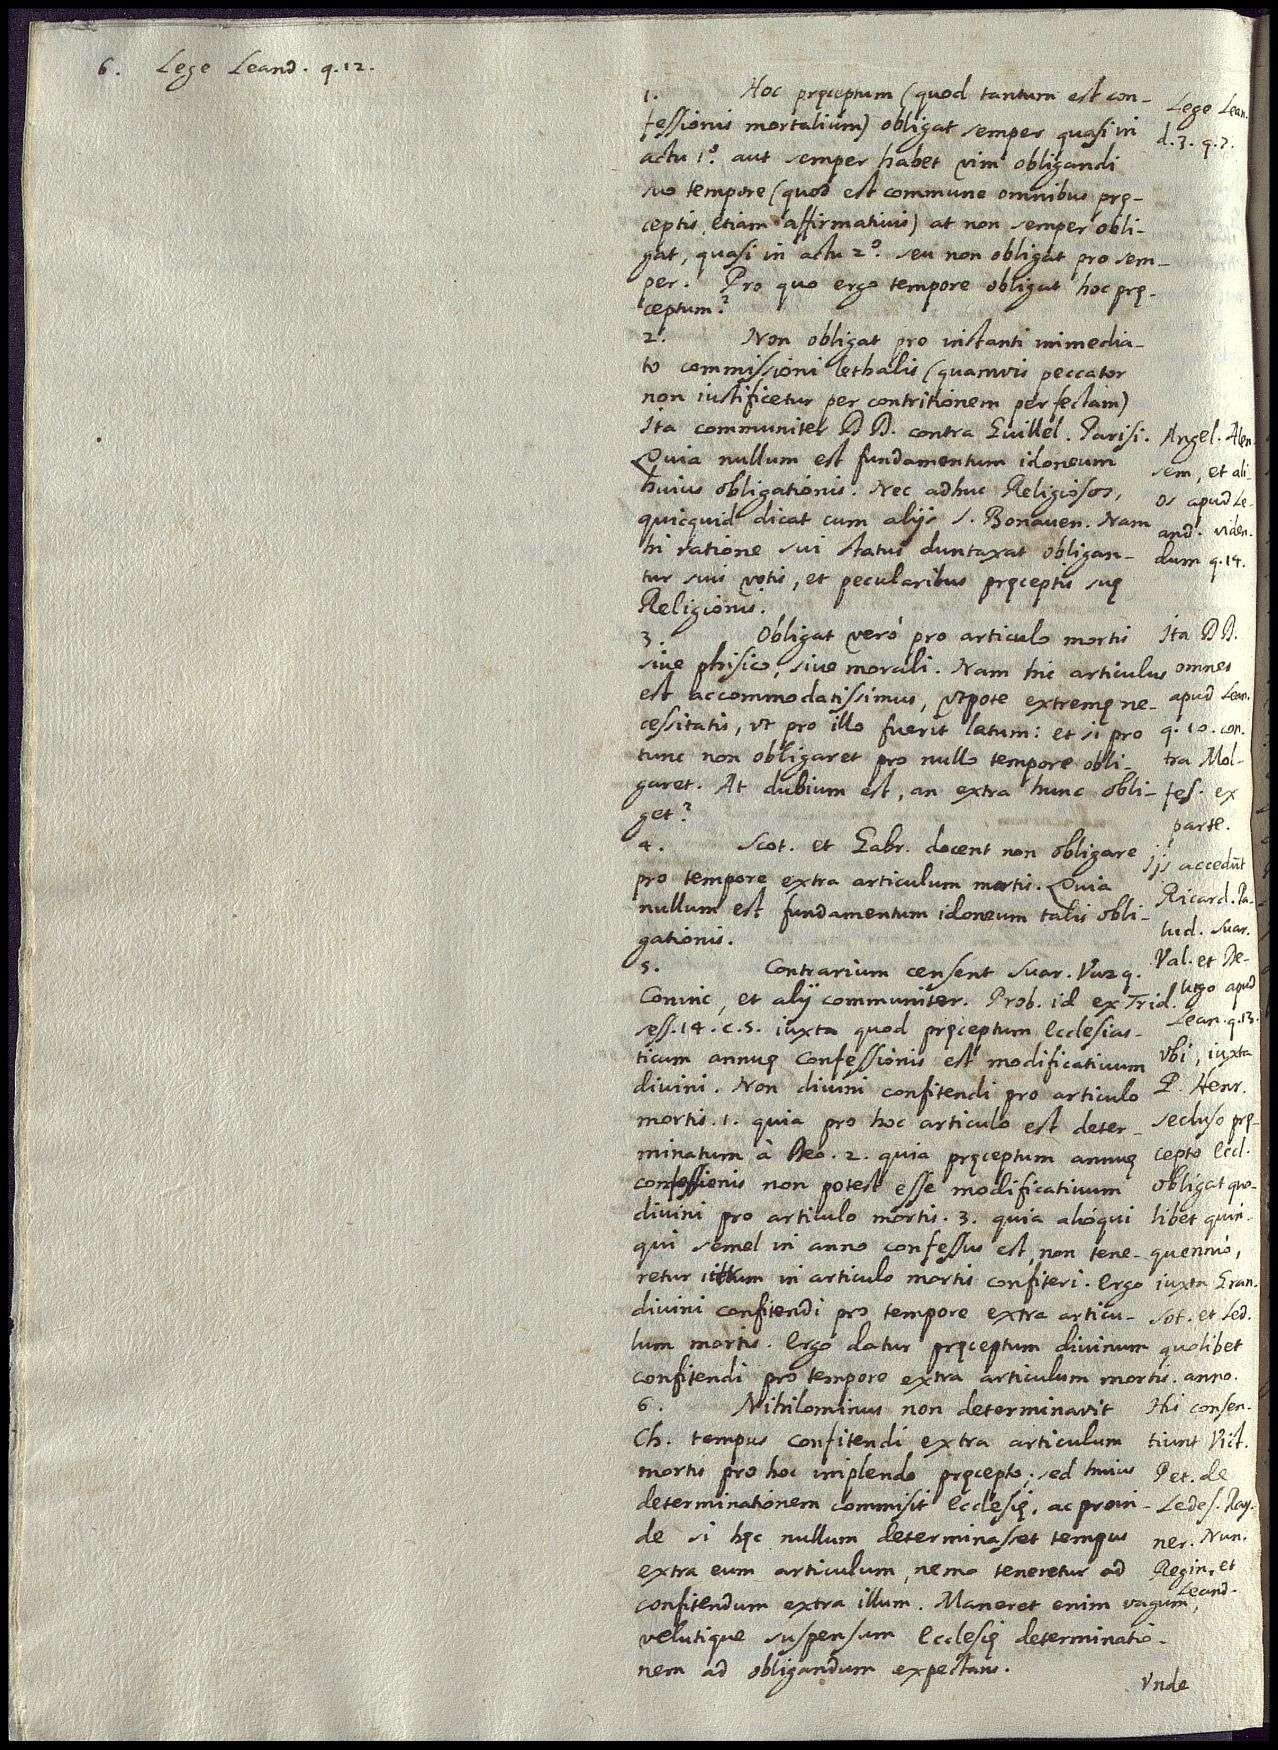 6. Lege Leand. q.12.
1. Hoc pręceptum (quod tantum est con-
fessionis mortalium) obligat semper quasi in
actu 1º. aut semper habet vim obligandi
suo tempore (quod est commune omnibus prę-
ceptis, etiam affirmativis) at non semper obli-
gat, quasi in actu 2º. seu non obligat pro sem-
per. Pro quo ergo tempore obligat hoc prę-
ceptum?
2. Non obligat pro instanti immedia-
to commissioni lethalis (quamvis peccator
non iustificetur per contritionem perfectam)
Ita communiter DD. contra Guillel. Parisi.
Quia nullum est fundamentum idoneum
huius obligationis. Nec adhuc Religiosos,
quicquid dicat cum alijs S. Bonaven. Nam
hi ratione sui status duntaxat obligan-
tur suis votis, et pecularibus pręceptis suę
Religionis.
3. Obligat veró pro articulo mortis
sive phisico, sive morali. Nam hic articulus
est accommodatissimus, vtpote extremę ne-
cessitatis, vt pro illo fuerit latum: et si pro
tunc non obligaret pro nullo tempore obli-
garet. At dubium est, an extra hunc obli-
get?
4. Scot. et Gabr. docent non obligare
pro tempore extra articulum mortis. Quia
nullum est fundamentum idoneum talis obli-
gationis.
5. Contrarium censent Suar. Vazq.
Coninc, et alij communiter. Prob. id ex Trid.
sess. 14. c. 5. iuxta quod pręceptum Ecclesias-
ticum annuę Confessionis est modificativum
divini. Non divini confitendi pro articulo
mortis. 1. quia pro hoc articulo est deter-
minatum à Deo. 2. quia pręceptum annuę
confessionis non potest esse modificativum
divini pro articulo mortis. 3. quia alióqui
qui semel in anno confessus est, non tene-
retur in articulo mortis confiteri. Ergo
divini confitendi pro tempore extra articu-
lum mortis. Ergó datur pręceptum divinum
confitendi pro tempore extra articulum mortis.
6. Nihilominus non determinavit
Ch. tempus confitendi extra articulum
mortis pro hoc implendo pręcepto; sed huius
determinationem commisit Ecclesię, ac proin-
de si hęc nullum determinasset tempus
extra eum articulum, nemo teneretur ad
confitendum extra illum. Maneret enim vagum,
velutique suspensum Ecclesię determinatio-
nem ad obligandum expectans.
Vnde
Lege Lean.
d. 3. q. 2.
Angel. Alen-
sem, et ali-
os apud Le-
and. viden-
dum q. 14.
Ita DD.
omnes
apud Lean.
q. 10. con-
tra Mol-
fes. ex
parte.
ijs accedūt
Ricard. Pa-
lud. Suar.
Val. et De-
lugo apud
Lean. q. 13.
vbi, iuxta
P. Henr.
secluso prę-
cepto Eccl.
obligat quo-
libet quin-
quennio,
iuxta Gran.
Sot. et Led.
quolibet
anno.
Hi consen-
tiunt Vict.
Pet. de
Ledes. Ray-
ner. Nun.
Regin. et
Leand.